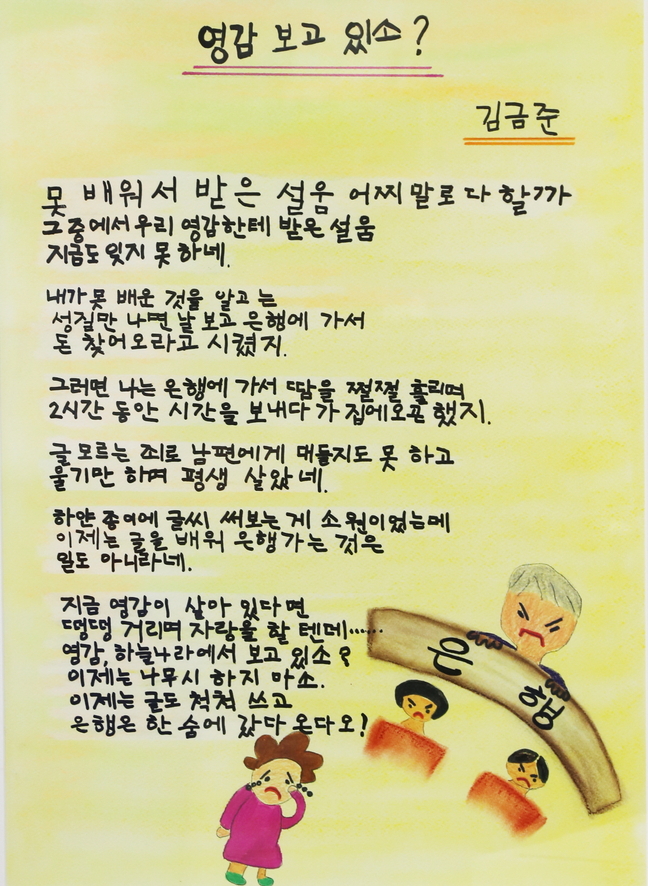 영감 보고 있소?
김금준
못 배워서 받은 설움 어찌 말로 다 할까
그중에서 우리 영감한테 받은 설움
지금도 잊지 못 하네.
내가 못 배운 것을 알고는
성질만 나면 날 보고 은행에 가서
돈 찾어오라고 시켰지.
그러면 나는 은행에 가서 땀을 쩔쩔 흘리며
2시간 동안 시간을 보내다가 집에오곤 했지.
글 모르는 죄로 남편에게 대들지도 못 하고
울기만 하며 평생 살았네.
하얀 종이에 글씨 써보는게 소원이었는데
이제는 글을 배워 은행가는 것은
일도 아니라네.
지금 영감이 살아 있다면
땡땡 거리며 자랑을 할 텐데……
영감, 하늘나라에서 보고 있소?
이제는 나무시 하지 마소.
이제는 글도 척척 쓰고
은행은 한 숨에 갔다 온다오!
은행